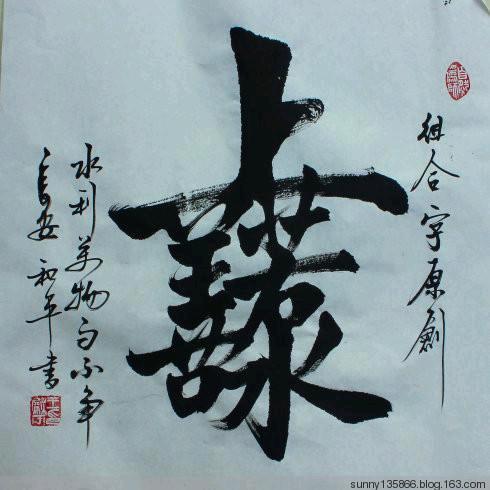 組合字原創
上善若水
水利萬物而不争
長安和平書
sunny135866.blog.163.com